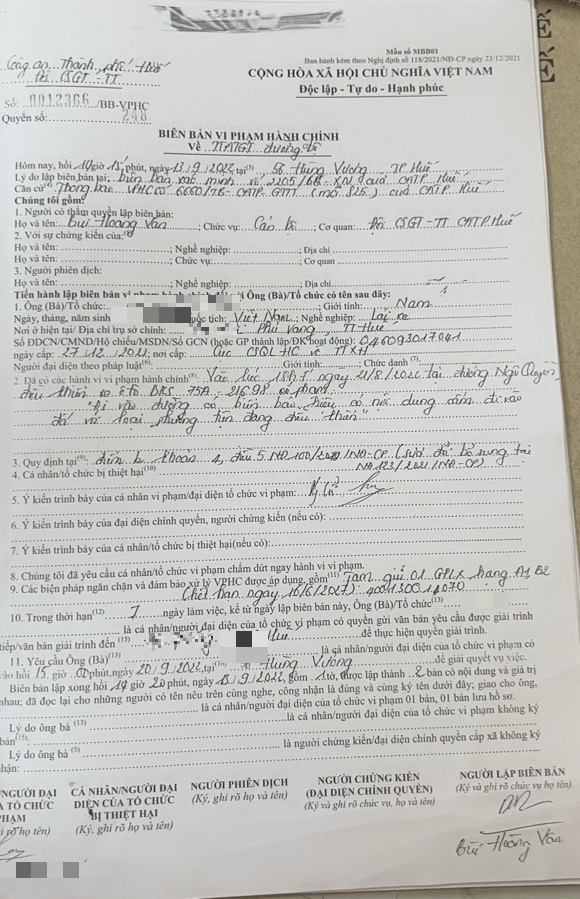 Mẫu số MBB01
Ban hành kèm theo Nghị định số 118/2021/NĐ-CP ngày 23/12/2021
Công an Thành phố Huế
Đội CSGT-TT
CỘNG HÒA XÃ HỘI CHỦ NGHĨA VIỆT NAM
Độc lập - Tự do - Hạnh phúc
Số: 0012366 /BB-VPHC
Quyển số: 248
BIÊN BẢN VI PHẠM HÀNH CHÍNH
Về TTATGT đường bộ
Hôm nay, hồi 14 giờ 15 phút, ngày 13/9/2022, tại(3) Hùng Vương, TP Huế
Lý do lập biên bản tại: biên bản xác minh số 2205/ XN của CATP Huế
Căn cứ(4) Thông báo VPHC số CATP của CATP Huế
Chúng tôi gồm:
1. Người có thẩm quyền lập biên bản:
Họ và tên: Bùi Hoàng Vân; Chức vụ: Cán bộ; Cơ quan: Đội CSGT-TT CATP Huế
2. Với sự chứng kiến của:
Họ và tên: ; Nghề nghiệp: ; Địa chỉ
Họ và tên: ; Chức vụ: ; Cơ quan
3. Người phiên dịch:
Họ và tên: ; Nghề nghiệp: ; Địa chỉ
Tiến hành lập biên bản vi phạm Ông (Bà)/Tổ chức có tên sau đây:
1. Ông (Bà)/Tổ chức: Giới tính: Nam
Ngày, tháng, năm sinh quốc tịch: Việt Nam; Nghề nghiệp: Lái xe
Nơi ở hiện tại/ Địa chỉ trụ sở chính: Phú Vang, TT Huế
Số ĐDCN/CMND/Hộ chiếu/MSDN/Số GCN (hoặc GP thành lập/ĐK hoạt động): 046093017041
ngày cấp: 27.12.2021, nơi cấp: Cục CSQLHC về TTXH
Người đại diện theo pháp luật(6): Giới tính: Chức danh (7):
2. Đã có các hành vi vi phạm hành chính(8): Vào lúc ngày 21/8/2022 tại đường Ngô Quyền
điều khiển xe ô tô BKS 75A-216.98 vi phạm
"Đi vào đường có biển báo hiệu có nội dung cấm đi vào
đối với loại phương tiện đang điều khiển"
3. Quy định tại(9): điểm b khoản 4, điều 5 NĐ 100/2019/NĐ-CP (sửa đổi bổ sung tại
NĐ 123/2021/NĐ-CP)
4. Cá nhân/tổ chức bị thiệt hại(10)
5. Ý kiến trình bày của cá nhân vi phạm/đại diện tổ chức vi phạm:
6. Ý kiến trình bày của đại diện chính quyền, người chứng kiến (nếu có):
7. Ý kiến trình bày của cá nhân/tổ chức bị thiệt hại(nếu có):
8. Chúng tôi đã yêu cầu cá nhân/tổ chức vi phạm chấm dứt ngay hành vi vi phạm.
9. Các biện pháp ngăn chặn và đảm bảo xử lý VPHC được áp dụng, gồm(11) Tạm giữ 01 GPLX hạng A1 B2
10. Trong thời hạn(12) 7 ngày làm việc, kể từ ngày lập biên bản này, Ông (Bà)/Tổ chức(13)
là cá nhân/người đại diện của tổ chức vi phạm có quyền gửi văn bản yêu cầu được giải trình
tiếp/văn bản giải trình đến (15) Huế để thực hiện quyền giải trình.
11. Yêu cầu Ông (Bà)(13) là cá nhân/người đại diện của tổ chức vi phạm có
vào hồi 15 giờ 00 phút, ngày 20/9/2022 tại Hùng Vương để giải quyết vụ việc.
Biên bản lập xong hồi 14 giờ 20 phút, ngày 13/9/2022, gồm 1 tờ, được lập thành 2 bản có nội dung và giá trị
nhau; đã đọc lại cho những người có tên nêu trên cùng nghe, công nhận là đúng và cùng ký tên dưới đây; giao cho ông,
là cá nhân/người đại diện của tổ chức vi phạm 01 bản, 01 bản lưu hồ sơ.
Lý do ông bà (13) là cá nhân/người đại diện của tổ chức vi phạm không ký
bản(15):
Lý do ông bà (5) là người chứng kiến/đại diện chính quyền cấp xã không ký
nhận:
NGƯỜI ĐẠI CÁ NHÂN/NGƯỜI ĐẠI NGƯỜI PHIÊN DỊCH NGƯỜI CHỨNG KIẾN NGƯỜI LẬP BIÊN BẢN
TỔ CHỨC DIỆN CỦA TỔ CHỨC (Ký, ghi rõ họ và tên) (ĐẠI DIỆN CHÍNH QUYỀN) (Ký và ghi rõ chức vụ họ tên)
PHẠM BỊ THIỆT HẠI (Ký và ghi rõ chức vụ, họ và tên)
họ tên) (Ký, ghi rõ họ và tên)
Bùi Hoàng Vân